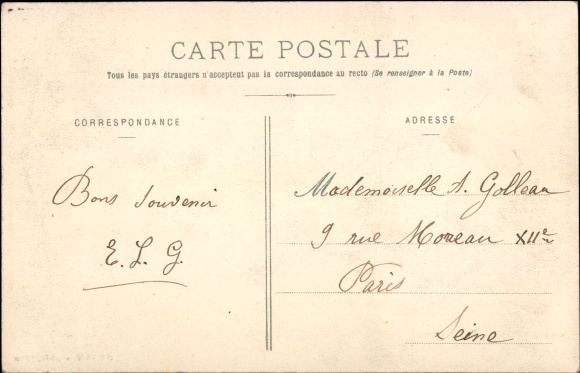 CARTE POSTALE
Tous les pays étrangers n'acceptent pas la correspondance au recto (Se renseigner à la Poste)
CORRESPONDANCE
ADRESSE
Bons souvenir
E. L. G.
Mademoiselle A. Golleau
9 rue Moreau XIIe
Paris
Seine